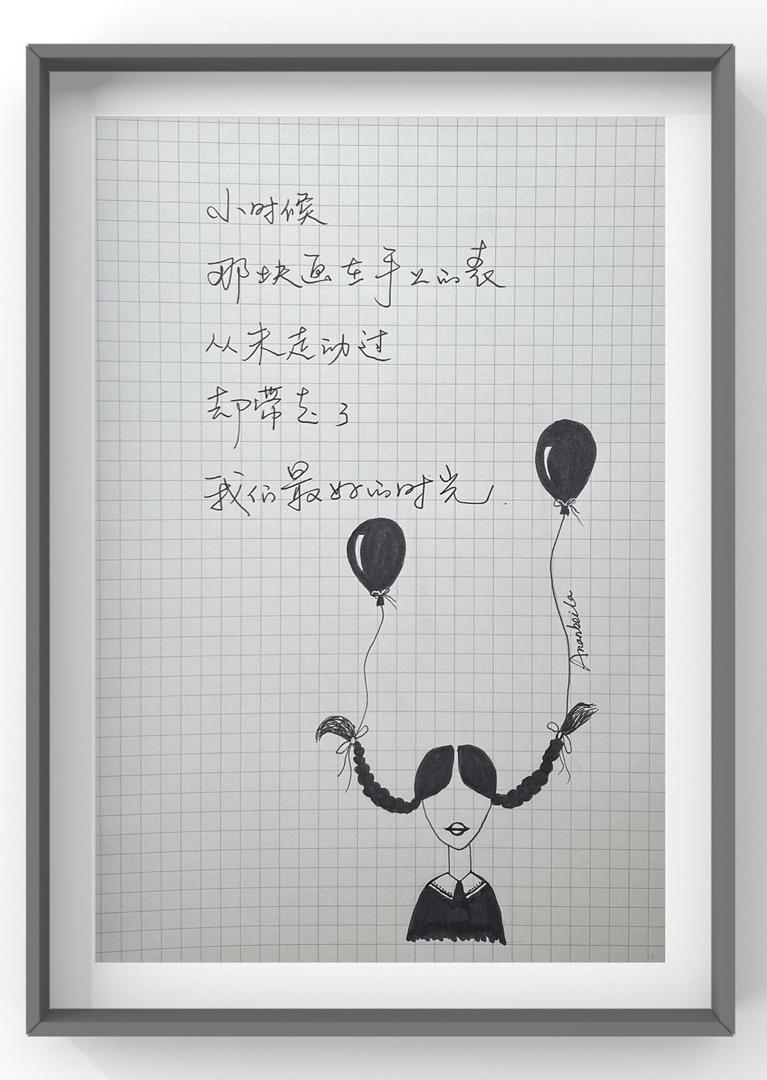 小时候
那块画在手上的表
从未走动过
却带走了
我们最好的时光.
Ananbeila